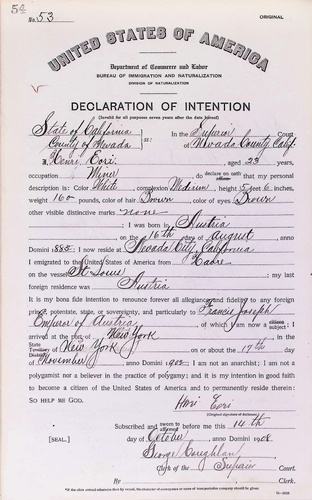 54
No. 53 ORIGINAL
UNITED STATES OF AMERICA
Department of Commerce and Labor
BUREAU OF IMMIGRATION AND NATURALIZATION
DIVISION OF NATURALIZATION
DECLARATION OF INTENTION
(Invalid for all purposes seven years after the date hereof)
State of California
County of Nevada ss: In the Superior Court
of Nevada County, Calif.
I, Henri Eori, aged 23 years,
occupation Miner, do declare on oath that my personal
description is: Color White, complexion Medium, height 5 feet 6 inches,
weight 160 pounds, color of hair Brown, color of eyes Brown
other visible distinctive marks none
I was born in Austria
on the 16th day of August, anno
Domini 1885; I now reside at Nevada City, California
I emigrated to the United States of America from Havre
on the vessel St Louis; my last
foreign residence was Austria
It is my bona fide intention to renounce forever all allegiance and fidelity to any foreign
prince, potentate, state, or sovereignty, and particularly to Francis Joseph
Emperor of Austria, of which I am now a citizen subject;
arrived at the port of New York, in the
State Territory District of New York on or about the 17th day
of November, anno Domini 1902; I am not an anarchist; I am not a
polygamist nor a believer in the practice of polygamy; and it is my intention in good faith
to become a citizen of the United States of America and to permanently reside therein:
SO HELP ME GOD.
Henri Eori
(Original signature of declarant)
Subscribed and sworn to before me this 14th
[SEAL.] day of October, anno Domini 1908.
George Coughlan
Clerk of the Superior Court.
By, Clerk.